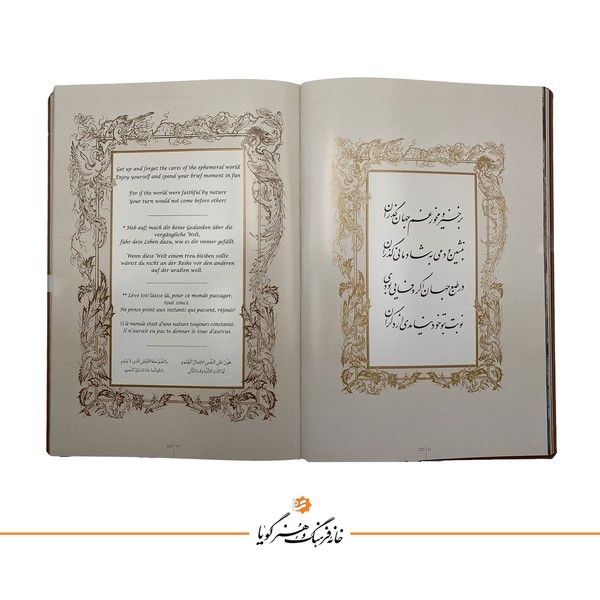 Get up and forget the cares of the ephemeral world
Enjoy yourself and spend your brief moment in fun
For if the world were faithful by nature
Your turn would not come before others
* Heb auf; mach dir keine Gedanken über die
vergängliche Welt,
führ dein Leben dazu, wie es dir immer gefällt.
Wenn diese Welt einem treu bleiben sollte
wärest du nicht an der Reihe vor den anderen
auf der uralten welt.
* Lève toi! laisse là, pour ce monde passager,
tout souci.
Ne pense point aux instants qui passent, réjouis!
Si le monde était d'une nature toujours constante.
Il n'aurait eu pas te donner le tour d'autrus.
هون على النفس احتمال الهموم
برخیز و مخور غم جهان گذران
بنشین و دمی به شادمانی گذران
در طبع جهان اگر وفایی بودی
نوبت بتو خود نیامدی از دگران
خانه فرهنگ و هنر گویا